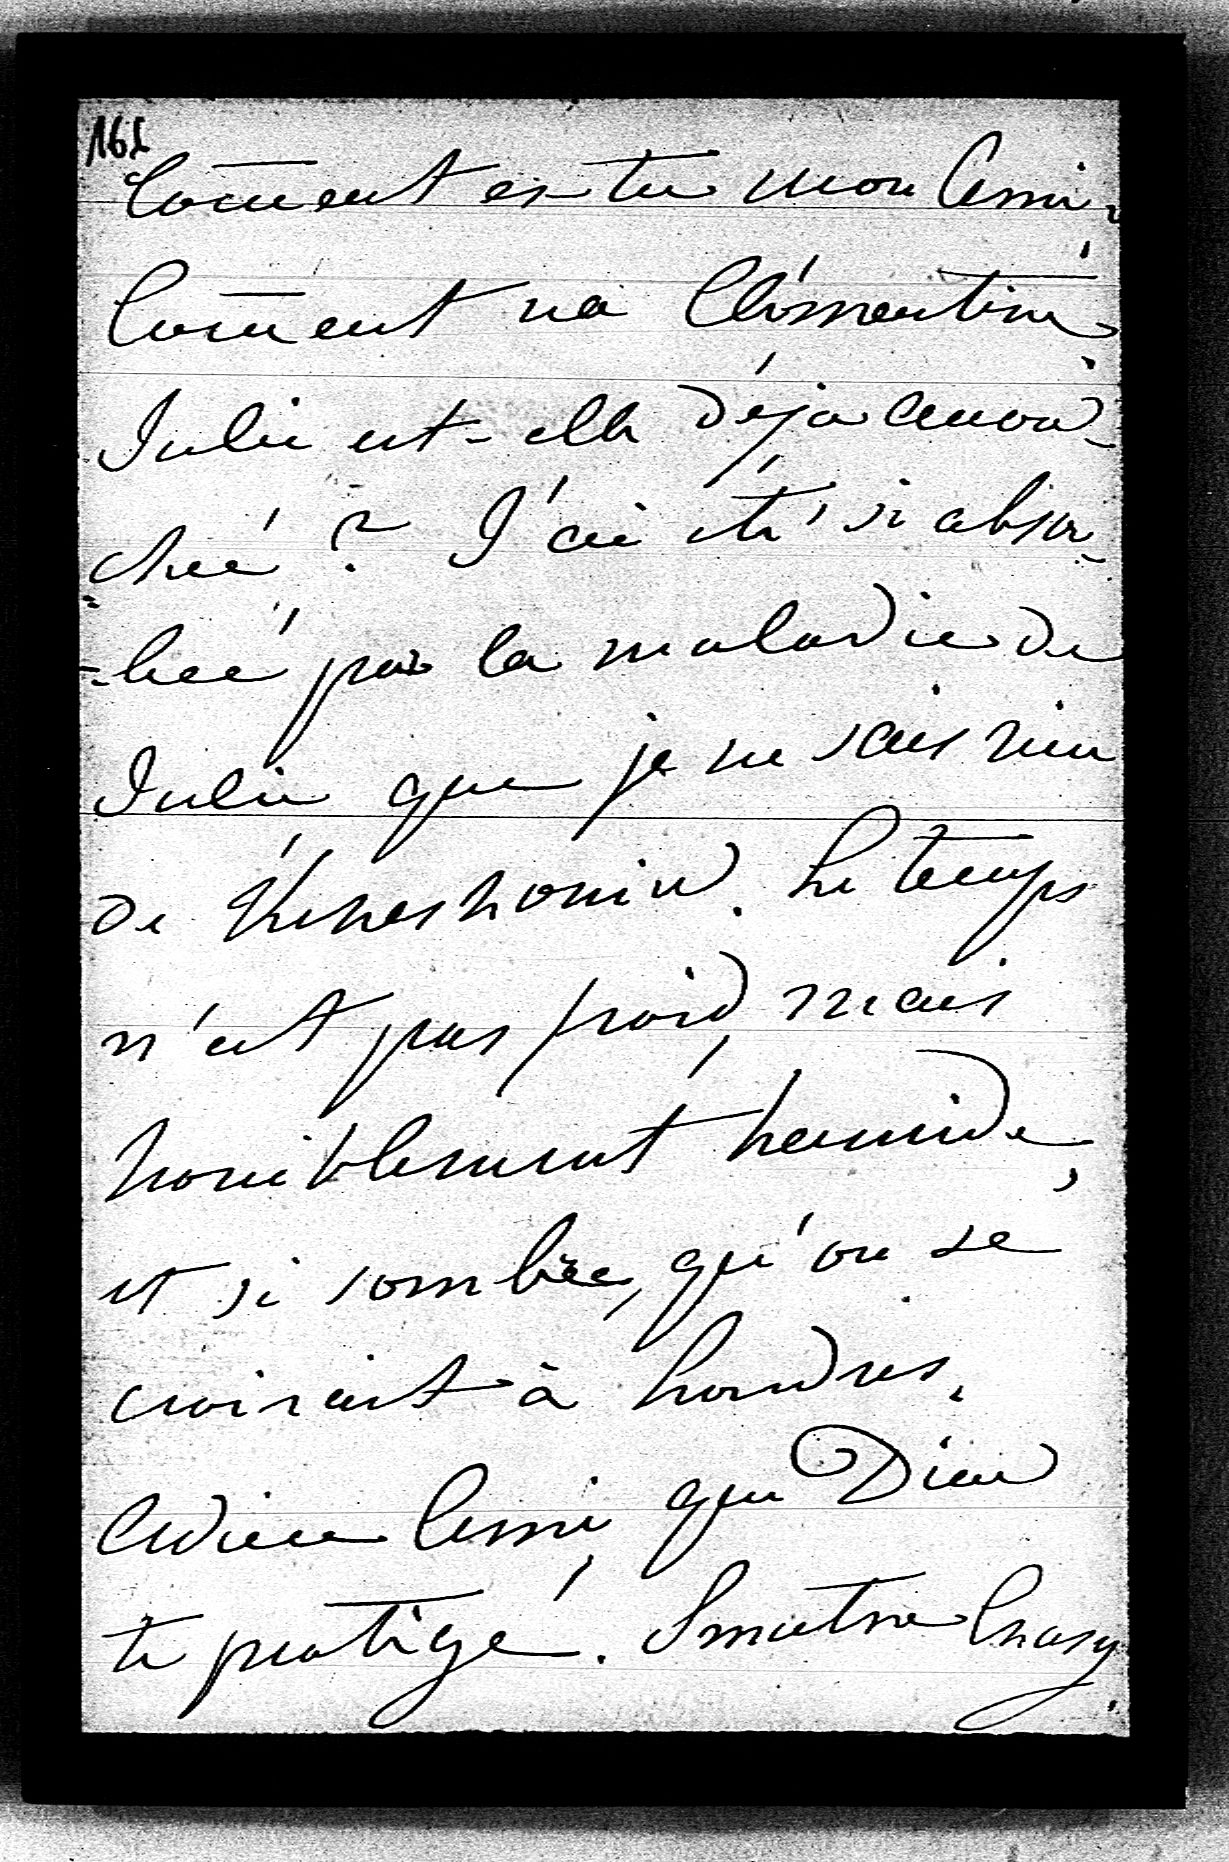 162
Com̄ent es-tu mon Ami,
Com̄ent va Clémentine,
Julie est-elle déjà accou-
chée ? J'ai été si absor-
-bée par la maladie de
Julie que je ne sais rien
de Théréshonin. Le temps
n'est pas froid, mais
horriblement humide,
et si sombre, qu'on se
croirait à Londres.
Adieu Ami, que Dieu
te protège.